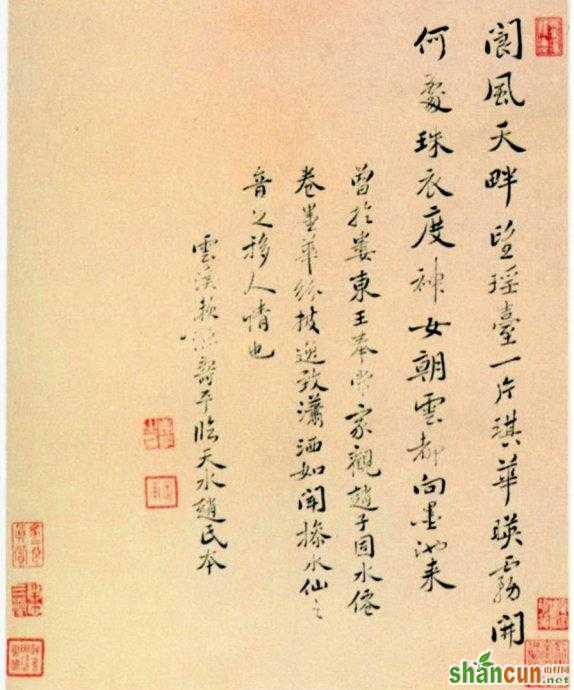 閬風天畔望瑤臺一片琪華暎霧開
何處珠衣度神女朝雲都向墨池來
曾於婁東王奉常家觀趙子固水僊
卷墨華紛披逸致瀟洒如聞摻水仙之
音之移人情也
雲溪壽平臨天水趙氏本
shancun
山村网
.net